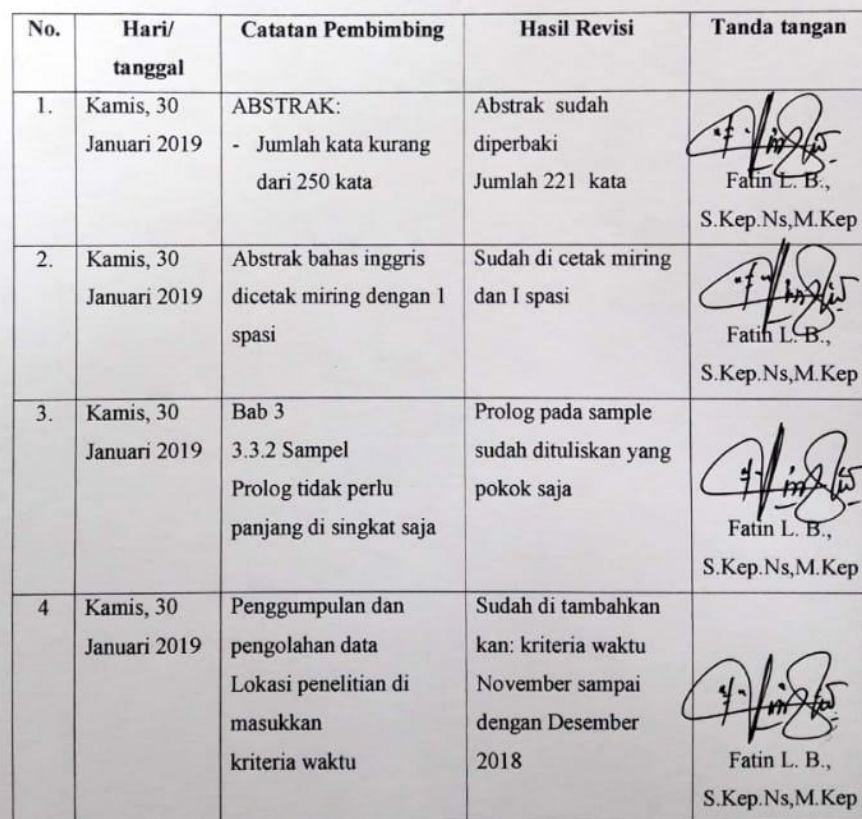 No.
Hari/
tanggal
Catatan Pembimbing
Hasil Revisi
Tanda tangan
1.
Kamis, 30
Januari 2019
ABSTRAK:
- Jumlah kata kurang
dari 250 kata
Abstrak sudah
diperbaki
Jumlah 221 kata
Fatin L. B.,
S.Kep.Ns,M.Kep
2.
Kamis, 30
Januari 2019
Abstrak bahas inggris
dicetak miring dengan 1
spasi
Sudah di cetak miring
dan I spasi
Fatin L. B.,
S.Kep.Ns,M.Kep
3.
Kamis, 30
Januari 2019
Bab 3
3.3.2 Sampel
Prolog tidak perlu
panjang di singkat saja
Prolog pada sample
sudah dituliskan yang
pokok saja
Fatin L. B.,
S.Kep.Ns,M.Kep
4
Kamis, 30
Januari 2019
Penggumpulan dan
pengolahan data
Lokasi penelitian di
masukkan
kriteria waktu
Sudah di tambahkan
kan: kriteria waktu
November sampai
dengan Desember
2018
Fatin L. B.,
S.Kep.Ns,M.Kep